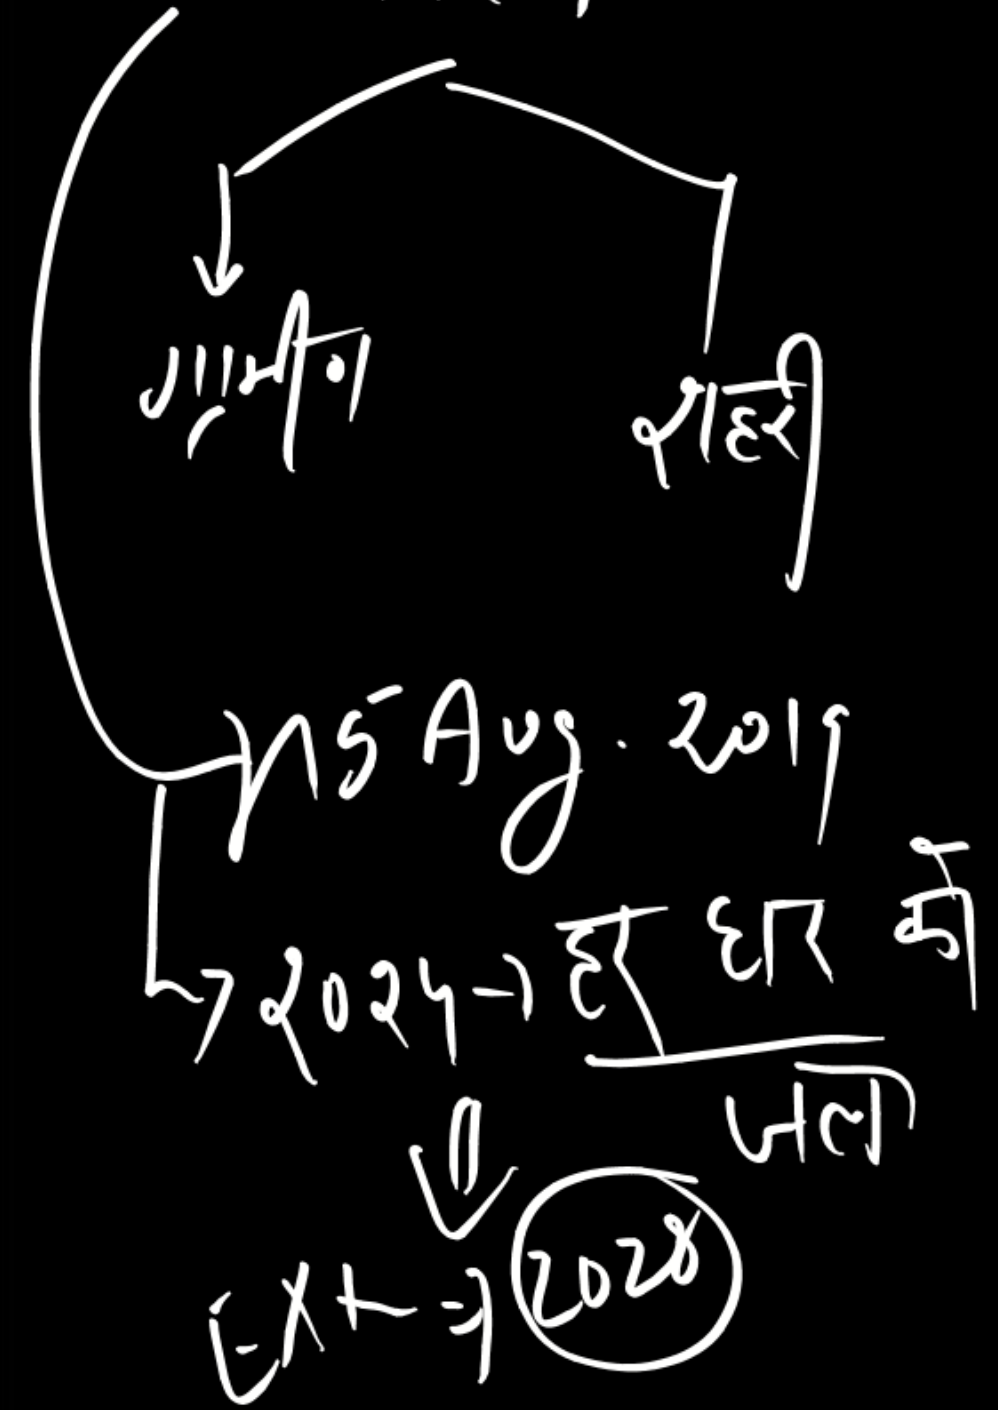 ग्रामीण
शहरी
15 Aug. 2019
2024 → हर घर को
जल
Ext ⇒ 2028